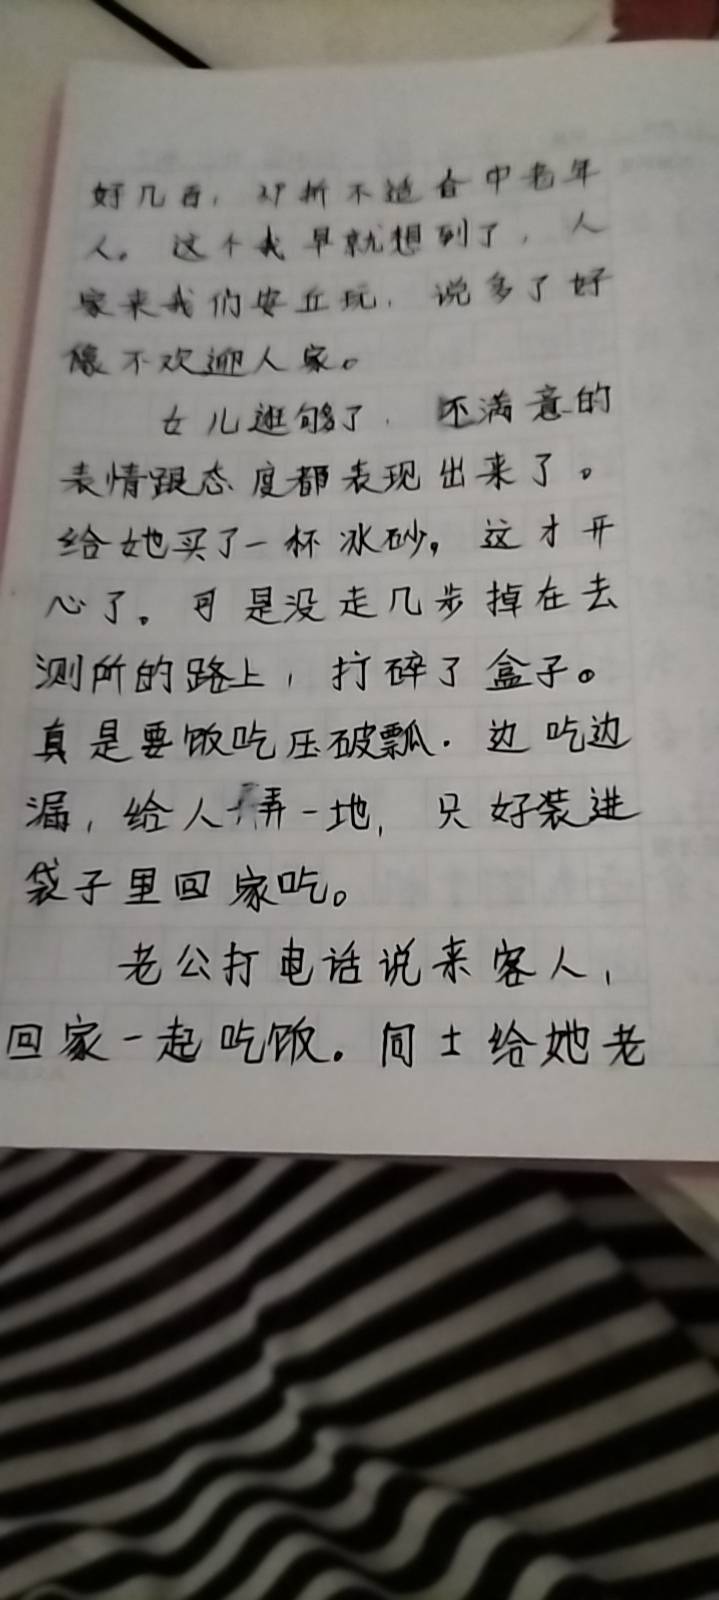 好几百，对折不适合中老年
人。这个我早就想到了，人
家来我们安丘玩，说多了好
像不欢迎人家。
女儿逛够了，不满意的
表情跟态度都表现出来了。
给她买了一杯冰砂，这才开
心了。可是没走几步掉在去
测所的路上，打碎了盒子。
真是要饭吃压破瓢.边吃边
漏，给人弄一地，只好装进
袋子里回家吃。
老公打电话说来客人，
回家一起吃饭。同士给她老